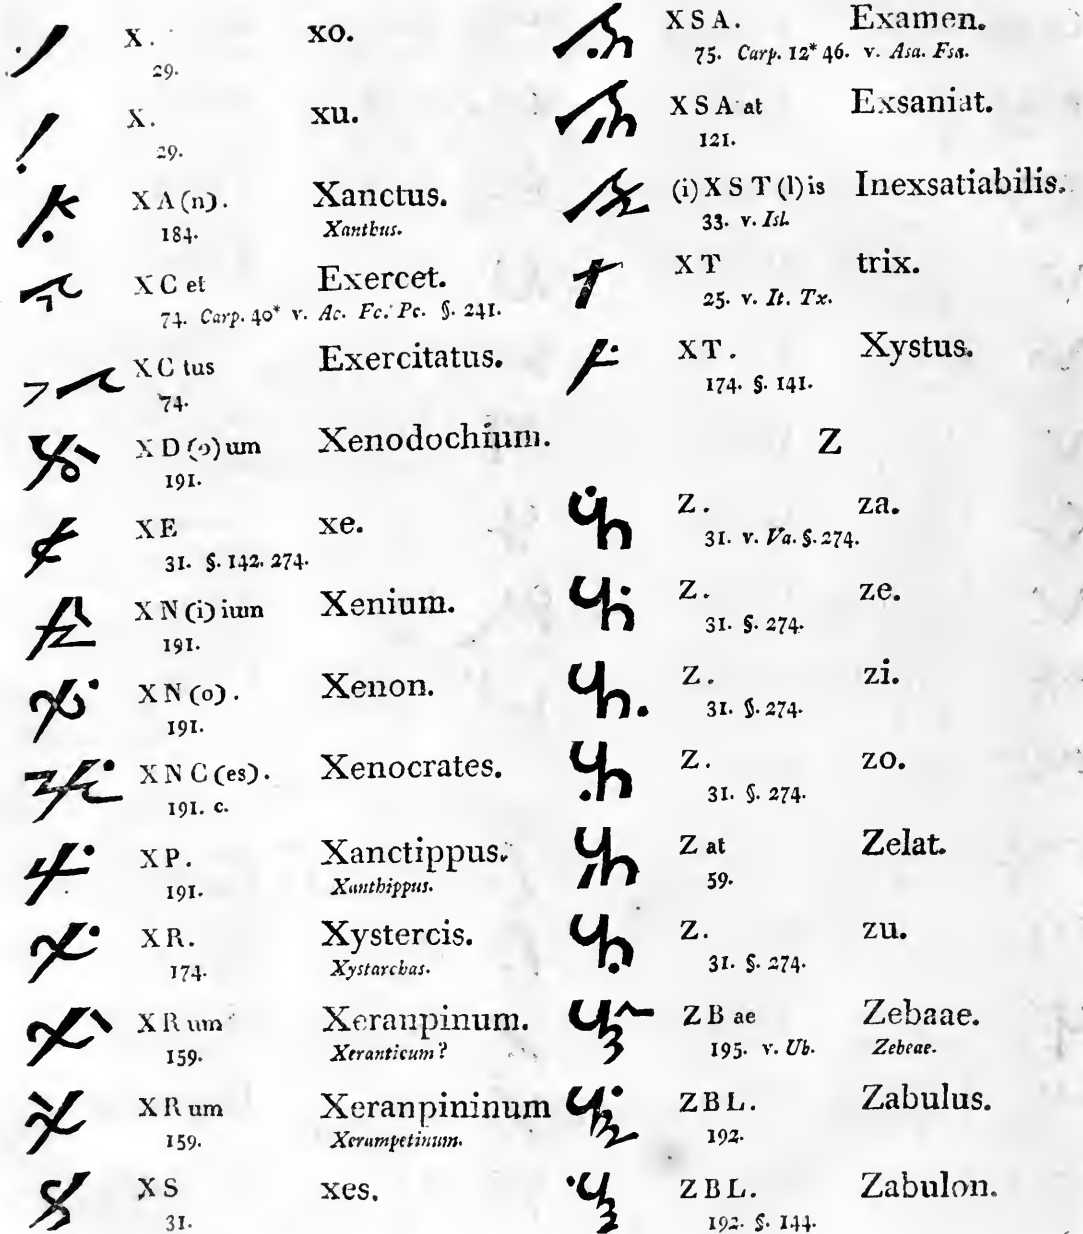 X. xo.
29.
X. xu.
29.
X A (n). Xanctus.
184. Xanthus.
X C et Exercet.
74. Carp. 40* v. Ac. Fc. Pc. §. 241.
X C tus Exercitatus.
74.
X D (o) um Xenodochium.
191.
X E xe.
31. §. 142. 274.
X N (i) ium Xenium.
191.
X N (o). Xenon.
191.
X N C (es). Xenocrates.
191. c.
X P. Xanctippus.
191. Xanthippus.
X R. Xystercis.
174. Xystarchas.
X R um Xeranpinum.
159. Xeranticum?
X R um Xeranpininum
159. Xerampetinum.
X S xes.
31.
X S A. Examen.
75. Carp. 12* 46. v. Asa. Fsa.
X S A at Exsaniat.
121.
(i) X S T (l) is Inexsatiabilis.
33. v. Isl.
X T trix.
25. v. It. Tx.
X T. Xystus.
174. §. 141.
Z
Z. za.
31. v. Va. §. 274.
Z. ze.
31. §. 274.
Z. zi.
31. §. 274.
Z. zo.
31. §. 274.
Z at Zelat.
59.
Z. zu.
31. §. 274.
Z B ae Zebaae.
195. v. Ub. Zebeae.
Z B L. Zabulus.
192.
Z B L. Zabulon.
192. §. 144.